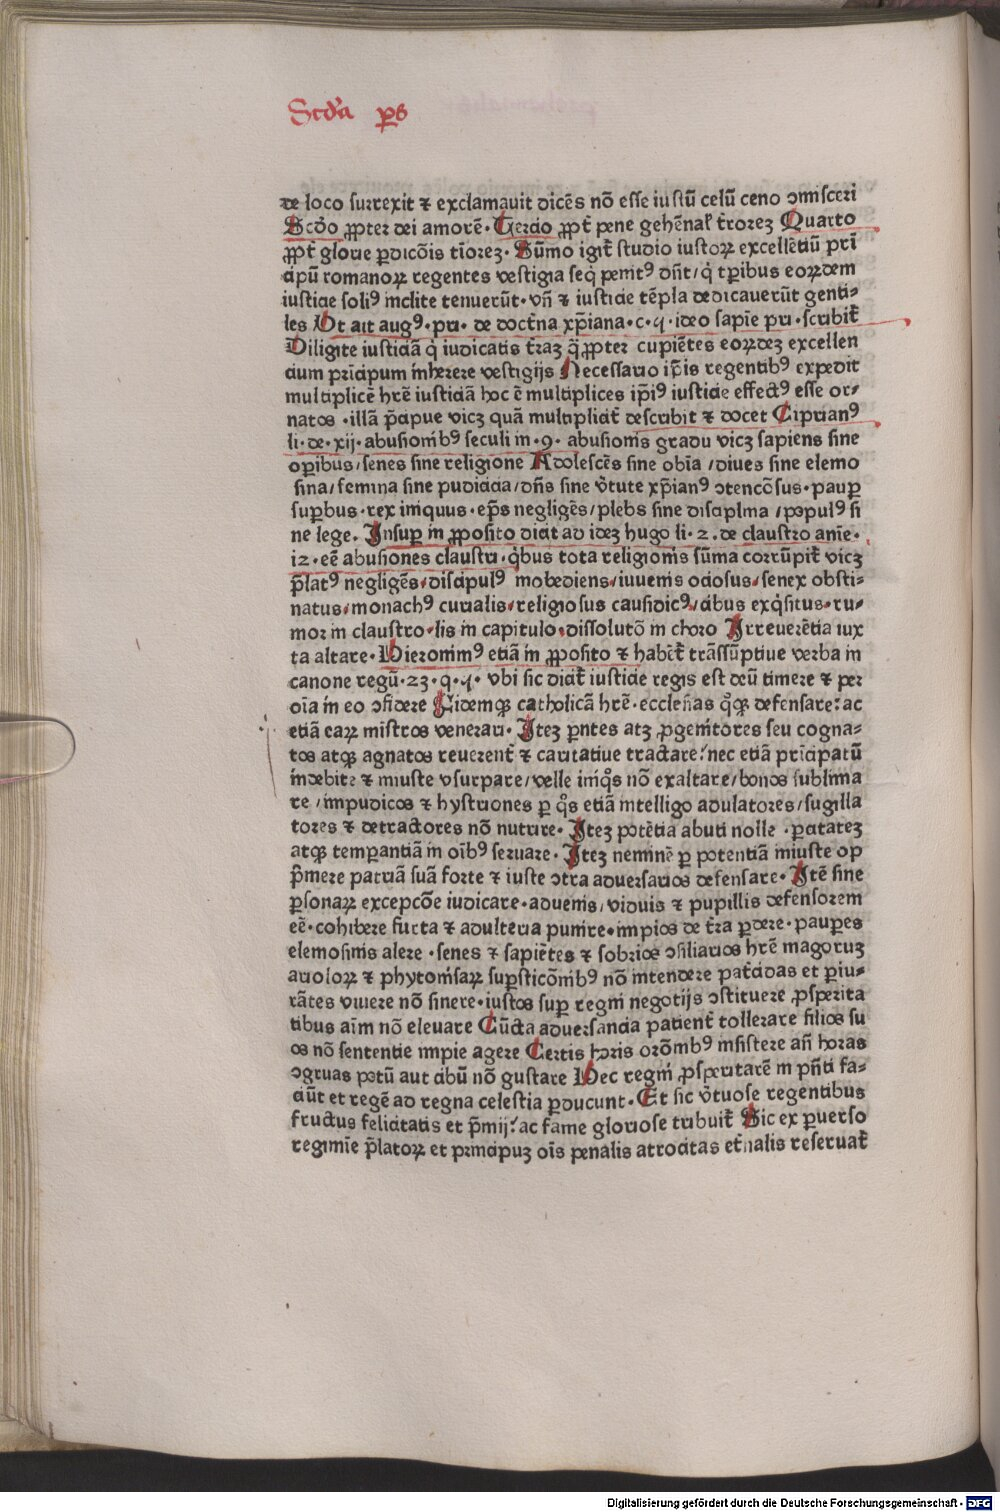 Scd'a ps
de loco surrexit ⁊ exclamauit dicēs nō esse iustū celū ceno ↄmisceri
Scd'o ꝓpter dei amorē· Tercio ꝓpt̄ pene gehēnal' t̄rorez Quarto
ꝓpt̄ glorie ꝑdicōis tīorez· Sūmo igit̄ studio iustoꝝ excellētiū pri
cipū romanoꝝ regentes vestigia seq̇ penitꝰ dn̄t/ q̇ tꝑibus eoꝝdem
iusticie soliꝰ inclite tenuerūt· vn̄ ⁊ iusticie tēpla dedicauerūt genti⸗
les Vt ait augꝰ· pri· de doct̄na xp̄iana·c·4·ideo sapīe pri·scribit̄
Diligite iusticiā q̇ iudicatis t̄raz q̄ ꝓpter cupiētes eoꝝdez excellen
cium prīcipum īnherere vestigijs Necessario ip̄is regentibꝰ expedit
multiplicē hr̄e iusticiā hoc ē multiplices ip̄iꝰ iusticie effectꝰ esse or⸗
natos ·illā p̄cipue vicz quā multiplicit̄ describit ⁊ docet Ciprianꝰ
li·de·xij·abusionibꝰ seculi in·9·abusionis gradu vicz sapiens sine
oꝑibus/senes sine religione Adolescēs sine obīa /diues sine elemo
sina/femina sine pudicicia/dn̄s sine v̄tute xp̄ianꝰ ↄtencōsus·pauꝑ
suꝑbus·rex iniquus·ep̄s negligēs/plebs sine disciplina/populꝰ si
ne lege. Insuꝑ in ꝓposito dicit ad idez hugo li·2·de claustro anīe·
12·eē abusiones claustri·q̇bus tota religionis sūma corrūpit̄ vicz
p̄latꝰ negligēs/discipulꝰ inobediens/iuuenis ociosus/senex obsti⸗
natus/monachꝰ curialis/religiosus causidicꝰ/cibus exq̇situs·ru⸗
mor in claustro/lis in capitulo/dissolutō in choro Irreuerētia iux
ta altare· Hieronimꝰ etiā in ꝓposito ⁊ habēt̄ trāssūptiue verba in
canone regū·23·q·4· vbi sic dicit̄ iusticie regis est deū timere ⁊ per
oīa in eo ↄfidere Fidemqꝫ catholicā hr̄e·ecclesias q̊qꝫ defensare:ac
etiā eaꝝ mīstros venerari· Itez ꝑntes atz ꝓgenitores seu cogna⸗
tos atqꝫ agnatos reuerent̄ ⁊ caritatiue tractare:nec etiā prīcipatū
īndebite ⁊ iniuste vsurpare/velle iniq̊s nō exaltare/bonos sublima
re /impudicos ⁊ hystriones ꝑ q̊s etiā intelligo adulatores/sugilla
tores ⁊ detractores nō nutrire· Itez potētia abuti nolle ·ꝑcitatez
atqꝫ temꝑantiā in oībꝰ seruare· Itez neminē ꝑ potentiā iniuste op
p̄mere patriā suā forte ⁊ iuste ↄtra aduersarios defensare· Itē sine
ꝑsonaꝝ excepcōe iudicare·aduenis/viduis ⁊ pupillis defensorem
eē·cohibere furta ⁊ adulteria punire·impios de t̄ra ꝑdere·pauꝑes
elemosinis alere ·senes ⁊ sapiētes ⁊ sobrios ↄsiliarios hr̄e magoruz
arioloꝝ ⁊ phytonīsaꝝ suꝑsticōnibꝰ nō intendere pat̄cidas et ꝑiu⸗
rātes viuere nō sinere·iustos suꝑ regni negotijs ↄstituere ꝓsperita
tibus aīm nō eleuare Cūcta aduersancia patient̄ tollerare filios su
os nō sententie impie agere Certis horis orōnibꝰ insistere an̄ horas
ↄgruas potū aut cibū nō gustare Hec regni ꝓsperitatē in pn̄ti fa⸗
ciūt et regē ad regna celestia ꝑducunt· Et sic v̄tuose regentibus
fructus felicitatis et p̄mij:ac fame gloriose tribuit̄ Sic ex ꝑuerso
regimīe p̄latoꝝ et principuz oīs penalis atrocitas et̄nalis reseruat̄
Digitalisierung gefördert durch die Deutsche Forschungsgemeinschaft - DFG